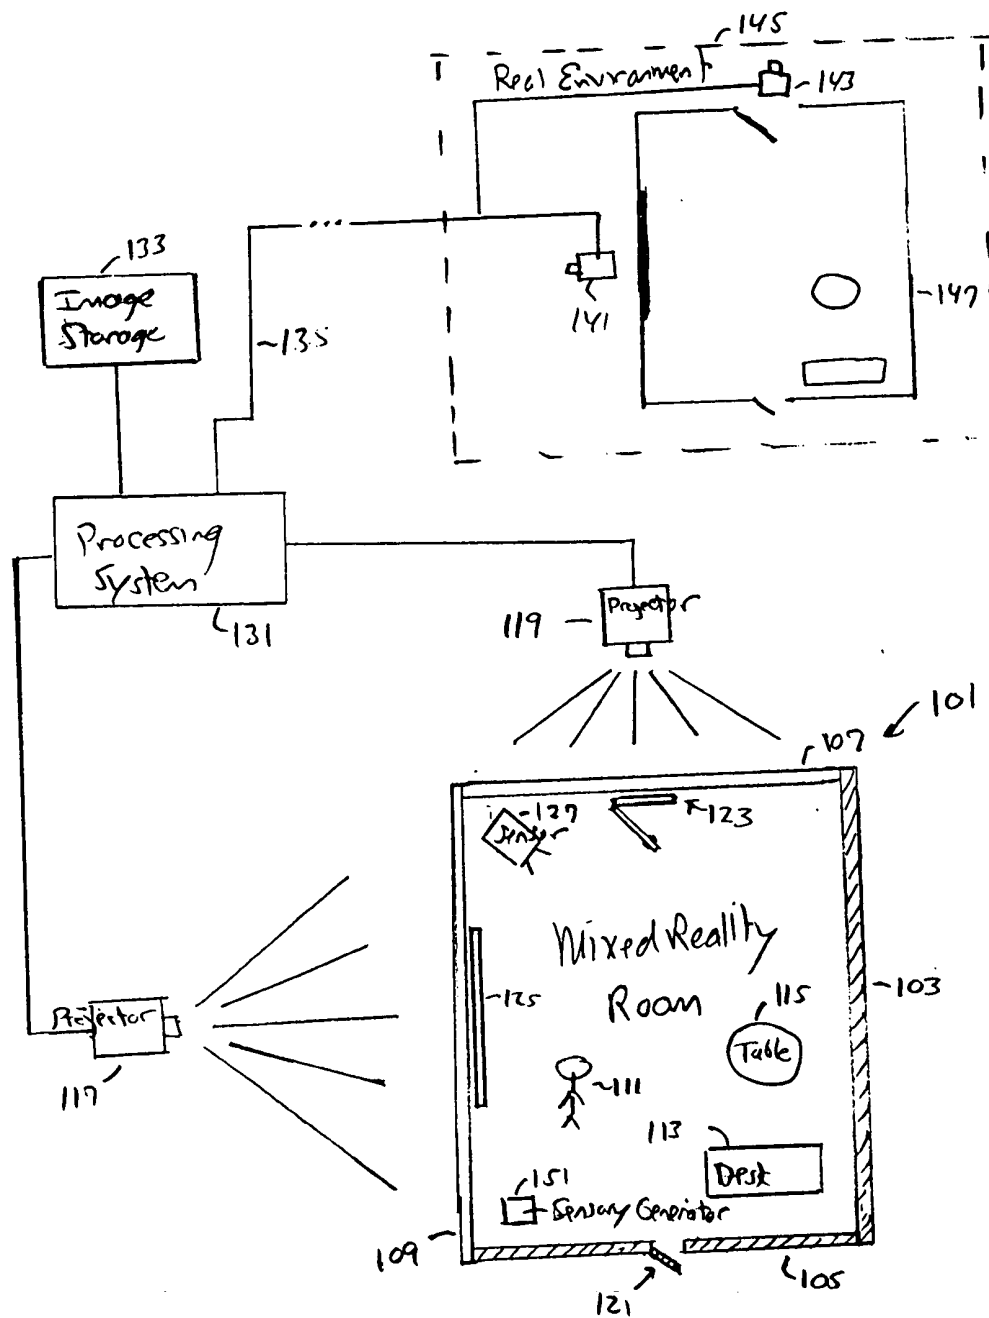 145
Real Environment
143
133
Image
Storage
135
141
147
Processing
System
131
Projector
119
101
107
127
Sensor
123
Mixed Reality
Room
125
103
115
Table
Projector
117
111
113
Desk
151
Sensory Generator
109
105
121